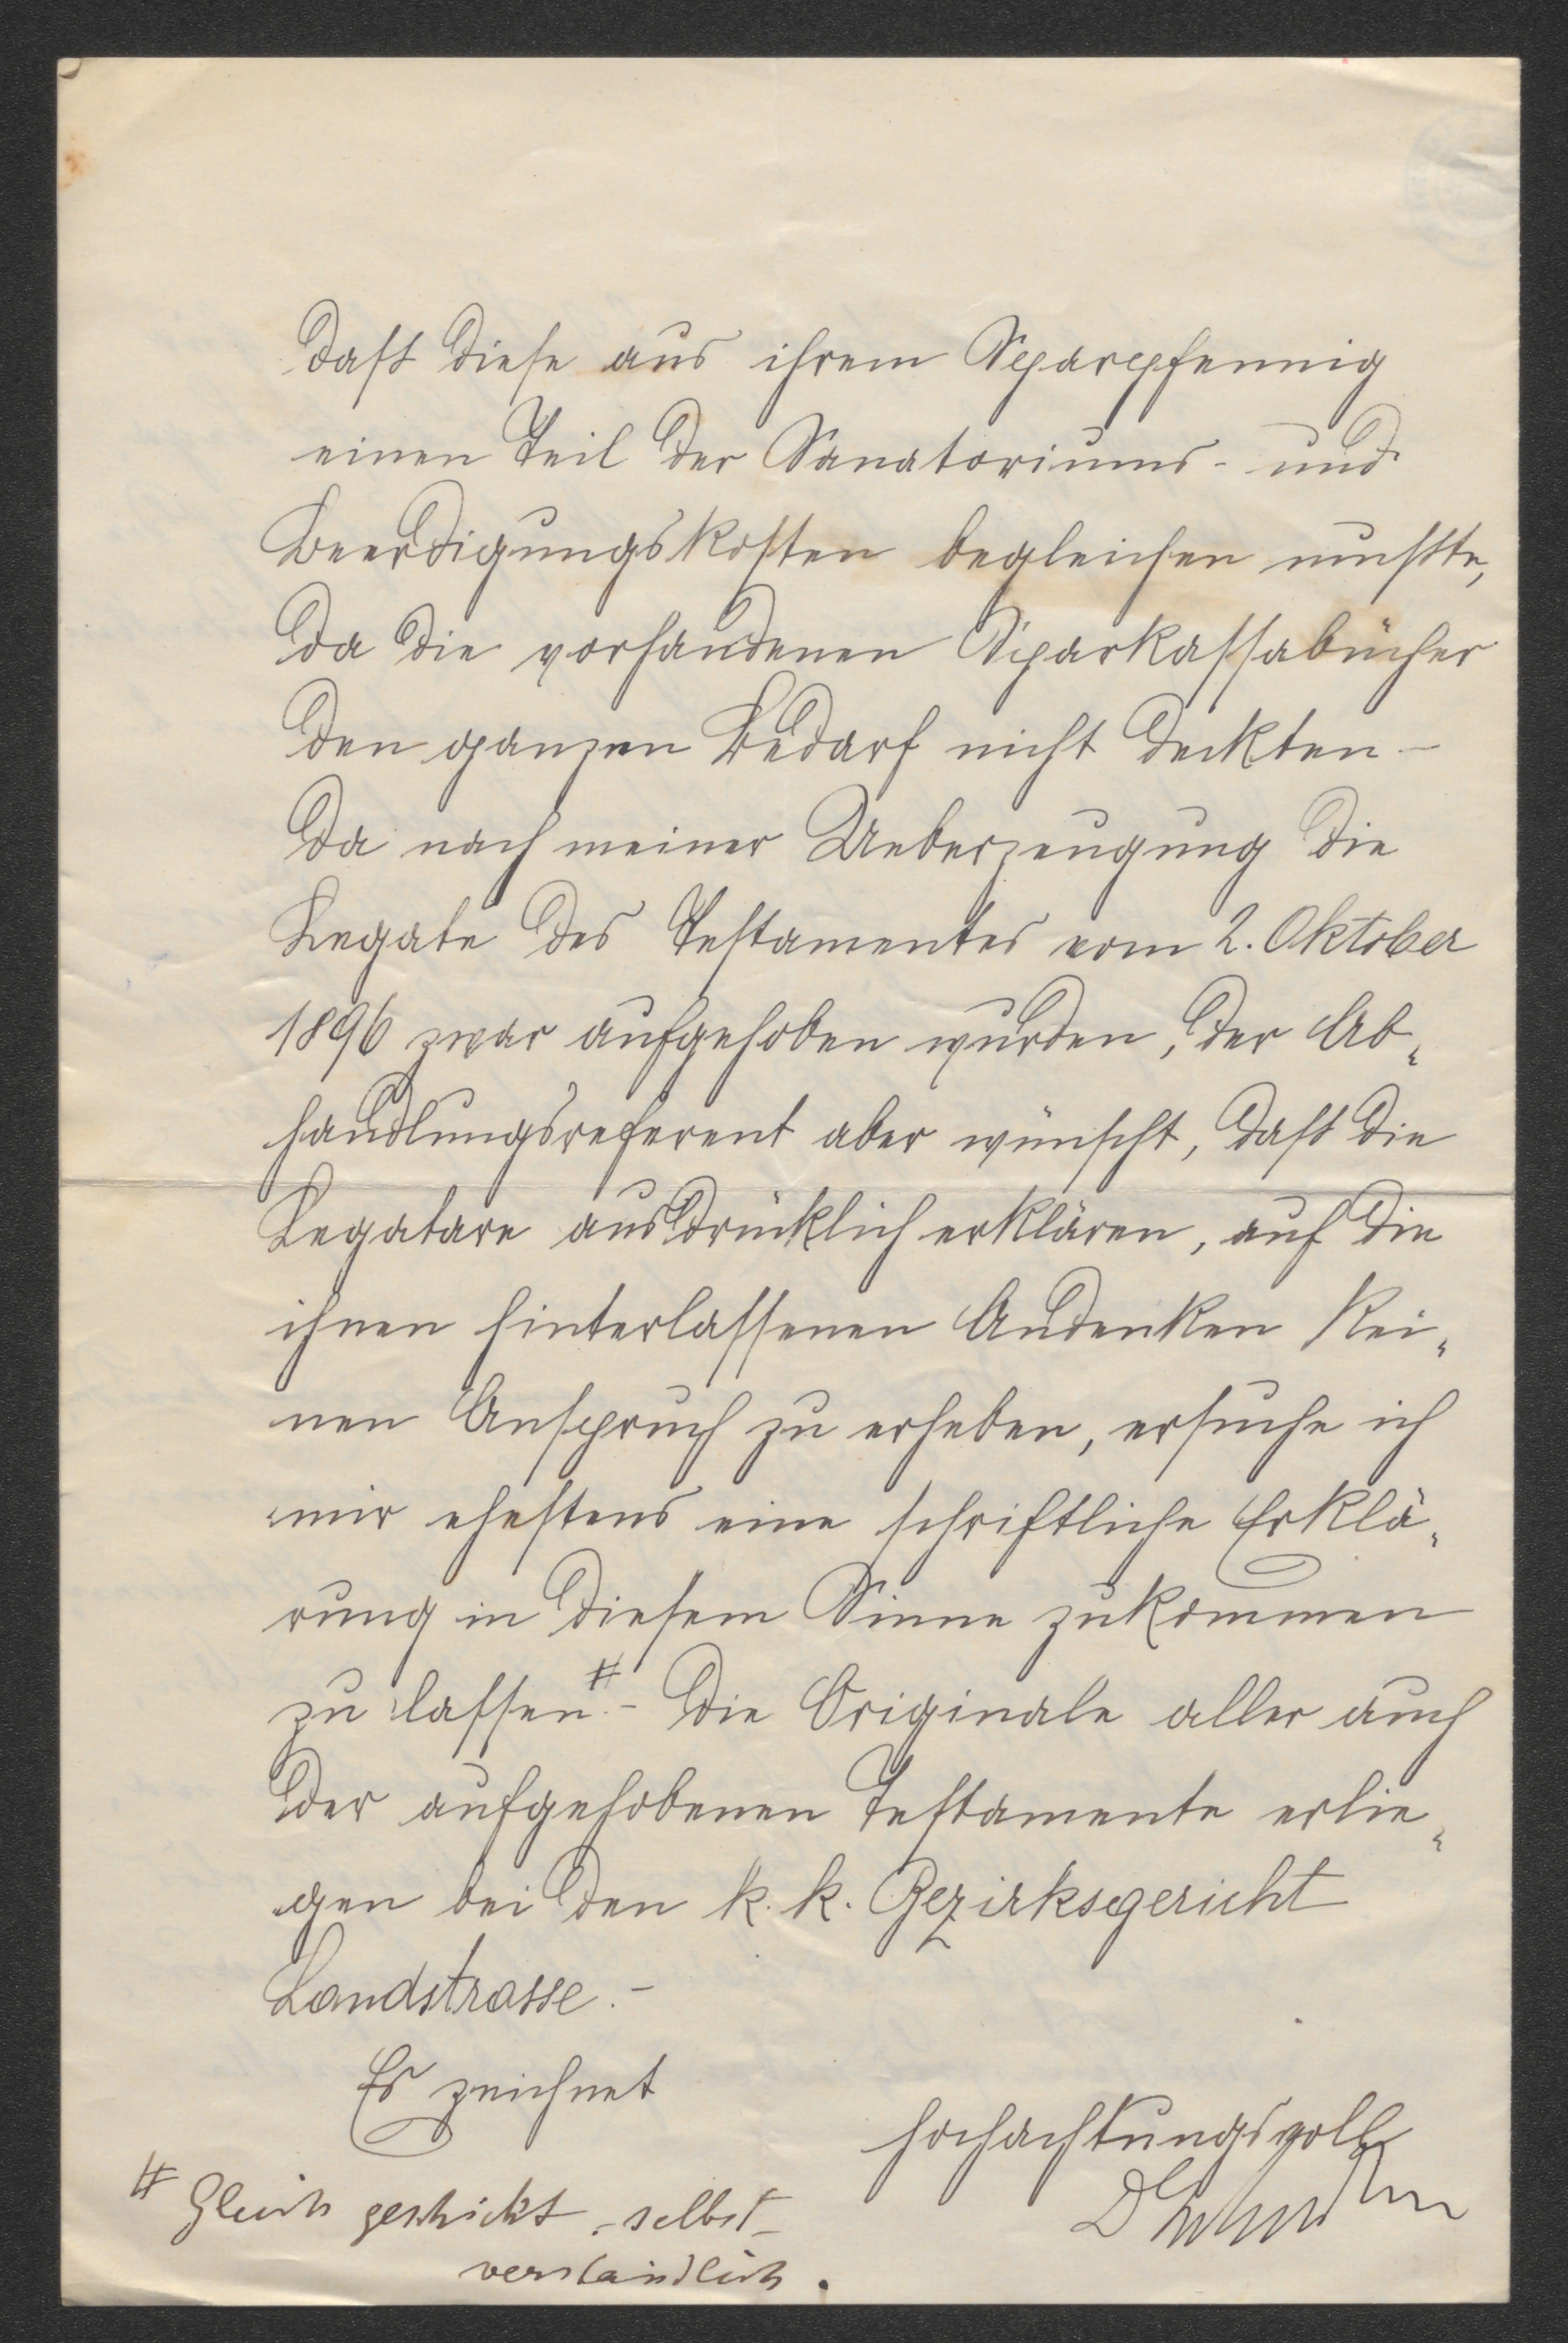 daſs diese aus ihrem Sparpfennig
einen Teil der Sanatoriums- und
Beerdigungskosten begleichen muſste,
da die vorhandenen Sparkassabücher
den ganzen Bedarf nicht deckten -
Da nach meiner Ueberzeugung die
Legate des Testamentes vom 2. Oktober
1896 zwar aufgehoben wurden, der Ab„
handlungsreferent aber wünscht, daſs die
Legatare ausdrücklich erklären, auf die
ihnen hinterlassenen Andenken kei„
nen Anspruch zu erheben, ersuche ich
mir ehestens eine schriftliche Erklä„
rung in diesem Sinne zukommen
zu lassen.# - Die Originale aller auch
der aufgehobenen Testamente erlie„
gen bei den k. k. Bezirksgericht
Landstrasse. -
Es zeichnet
hochachtungsvoll
# Gleich geschickt - selbst-
verständlich.